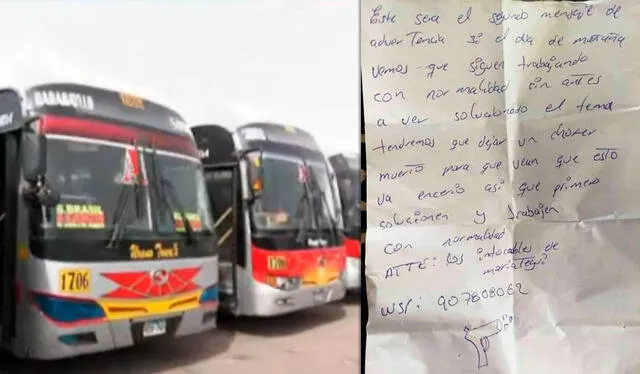 CARABAYLLO
1706
S. BRASIL
1706
1706
Este sera el segundo mensaje de
adver Tencia si el dia de mañana
vemos que siguen trabajando
con normalidad sin antes
a ver solucionado el tema
tendremos que dejar un chofer
muerto para que vean que esto
va encerio asi que primero
solucionen y trabajen
con normalidad
ATTE: los intocables de
mariategui
WSP: 907808062